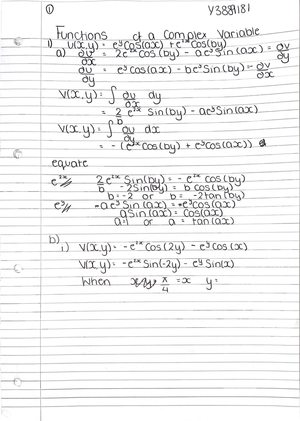 ① Y3889181
Functions of a Complex Variable
1) U(x,y) = e^y Cos(ax) + e^2x Cos(by)
a) ∂u/∂x = 2e^2x Cos(by) - ae^y Sin(ax) = ∂v/∂y
∂u/∂y = e^y Cos(ax) - be^2x Sin(by) = -∂v/∂x
V(x,y) = ∫ ∂u/∂x dy
= 2/b e^2x Sin(by) - ae^y Sin(ax)
V(x,y) = ∫ ∂u/∂y dx
= -(e^2x Cos(by) + e^y Cos(ax))
equate
e^2x// 2/b e^2x Sin(by) = -e^2x Cos(by)
-2Sin(by) = b Cos(by)
b = -2 or b = -2tan(by)
e^y// -ae^y Sin(ax) = -e^y Cos(ax)
aSin(ax) = Cos(ax)
a=1 or a = tan(ax)
b)
i) V(x,y) = -e^2x Cos(2y) - e^y Cos(x)
V(x,y) = -e^2x Sin(-2y) - e^y Sin(x)
When π/4 = x y =